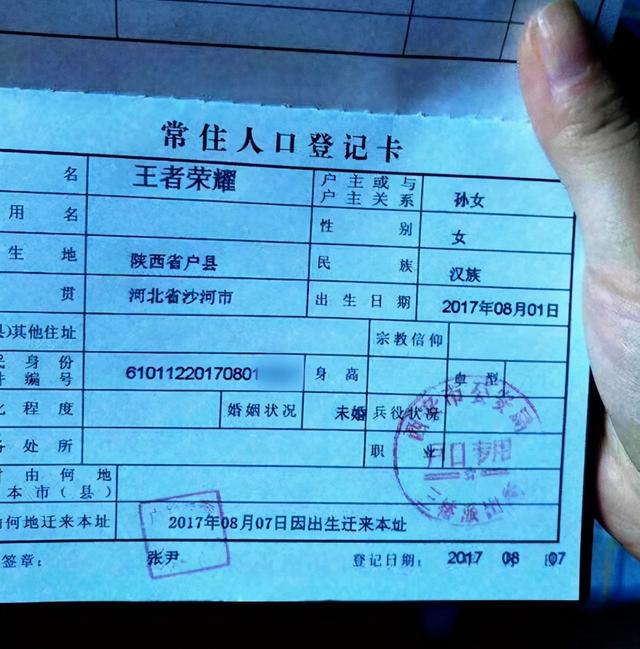 常住人口登记卡
名 王者荣耀 户主或与户主关系 孙女
用名 性别 女
生地 陕西省户县 民族 汉族
贯 河北省沙河市 出生日期 2017年08月01日
县)其他住址 宗教信仰
民身份
件编号 61011220170801 身高 血型
化程度 婚姻状况 未婚 兵役状况
务处所 职业
由何地
本市(县)
何地迁来本址 2017年08月07日因出生迁来本址
签章: 张尹 登记日期: 2017 08 07
西安市公安局
户口专用